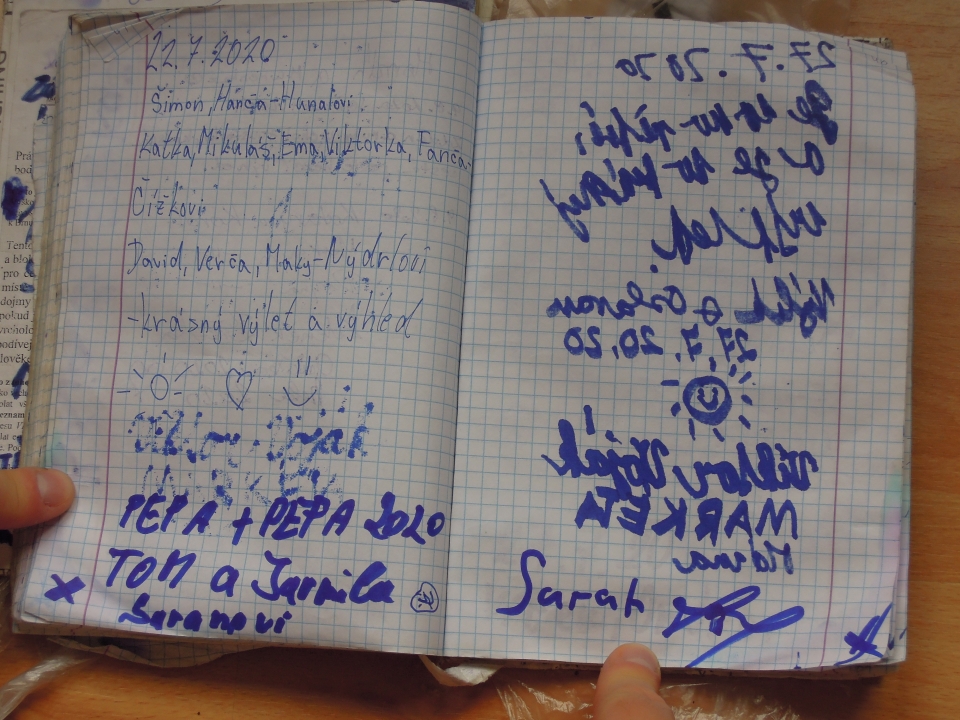 22.7.2020
Šimon, Hanča-Hunalovi
Katka, Mikuláš, Ema, Viktorka, Fanča-
Čížkovi
David, Verča, Maky-Nýdrlovi
-krásný výlet a výhled
PEPA + PEPA 2020
TOM a Jarmila
Baranovi
27.7.2020
Je to tu
a je to krásný
Výlet
27.7.2020
Viktor Voják
MARKETA
Mama
Sarah